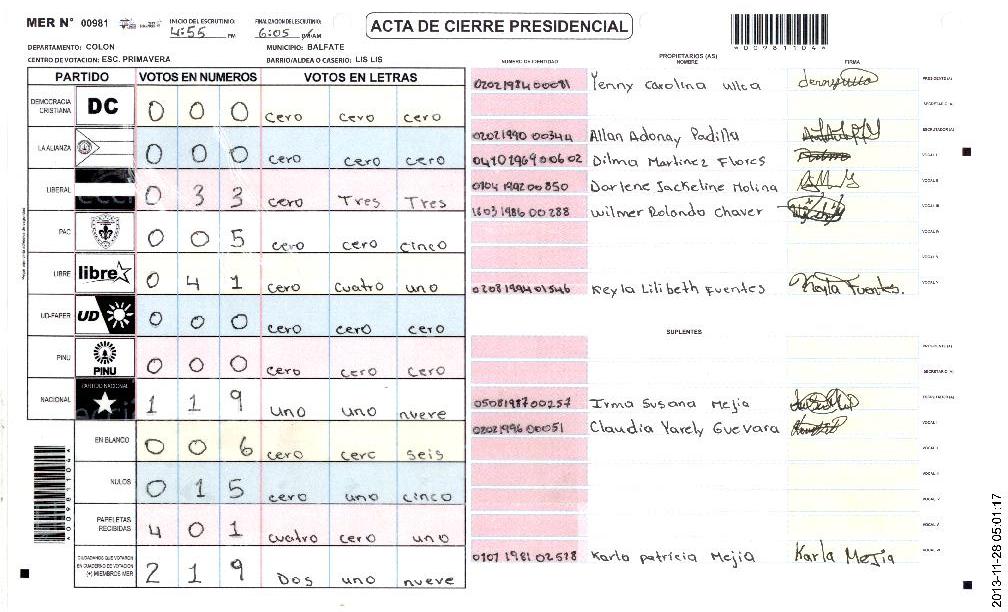 MER N° 00981
INICIO DEL ESCRUTINIO: 4:55 PM
FINALIZACION DEL ESCRUTINIO: 6:05
ACTA DE CIERRE PRESIDENCIAL
*009811044*
DEPARTAMENTO: COLON
MUNICIPIO: BALFATE
CENTRO DE VOTACION: ESC. PRIMAVERA
BARRIO/ALDEA O CASERIO: LIS LIS
PARTIDO VOTOS EN NUMEROS VOTOS EN LETRAS
DEMOCRACIA CRISTIANA DC 0 0 0 cero cero cero
LA ALIANZA 0 0 0 cero cero cero
LIBERAL 0 3 3 cero Tres Tres
PAC 0 0 5 cero cero cinco
LIBRE libre 0 4 1 cero cuatro uno
UD-FAPER UD 0 0 0 cero cero cero
PINU PINU 0 0 0 cero cero cero
NACIONAL PARTIDO NACIONAL 1 1 9 uno uno nueve
EN BLANCO 0 0 6 cero cerc seis
NULOS 0 1 5 cero uno cinco
PAPELETAS RECIBIDAS 4 0 1 cuatro cero uno
CIUDADANOS QUE VOTARON EN CUADERNO DE VOTACION (+) MIEMBROS MER 2 1 9 Dos uno nueve
PROPIETARIOS (AS)
NUMERO DE IDENTIDAD NOMBRE FIRMA
0202198400081 Yenny Carolina PRESIDENTE (A)
SECRETARIO (A)
0202199000344 Allan Adonay Padilla ESCRUTADOR (A)
0410196900602 Dilma Martinez Flores VOCAL I
0104199200850 Darlene Jackeline Molina VOCAL II
1803198600288 Wilmer Rolando Chaver VOCAL III
VOCAL IV
0208199401546 Keyla Lilibeth Fuentes Keyla Fuentes. VOCAL V
SUPLENTES
PRESIDENTE (A)
SECRETARIO (A)
0508198700257 Irma Susana Mejia ESCRUTADOR (A)
0202199600051 Claudia Yarely Guevara VOCAL I
VOCAL II
VOCAL III
VOCAL IV
VOCAL V
0107198102518 Karla patricia Mejia Karla Mejia
*009811044*
2013-11-28 05:01:17